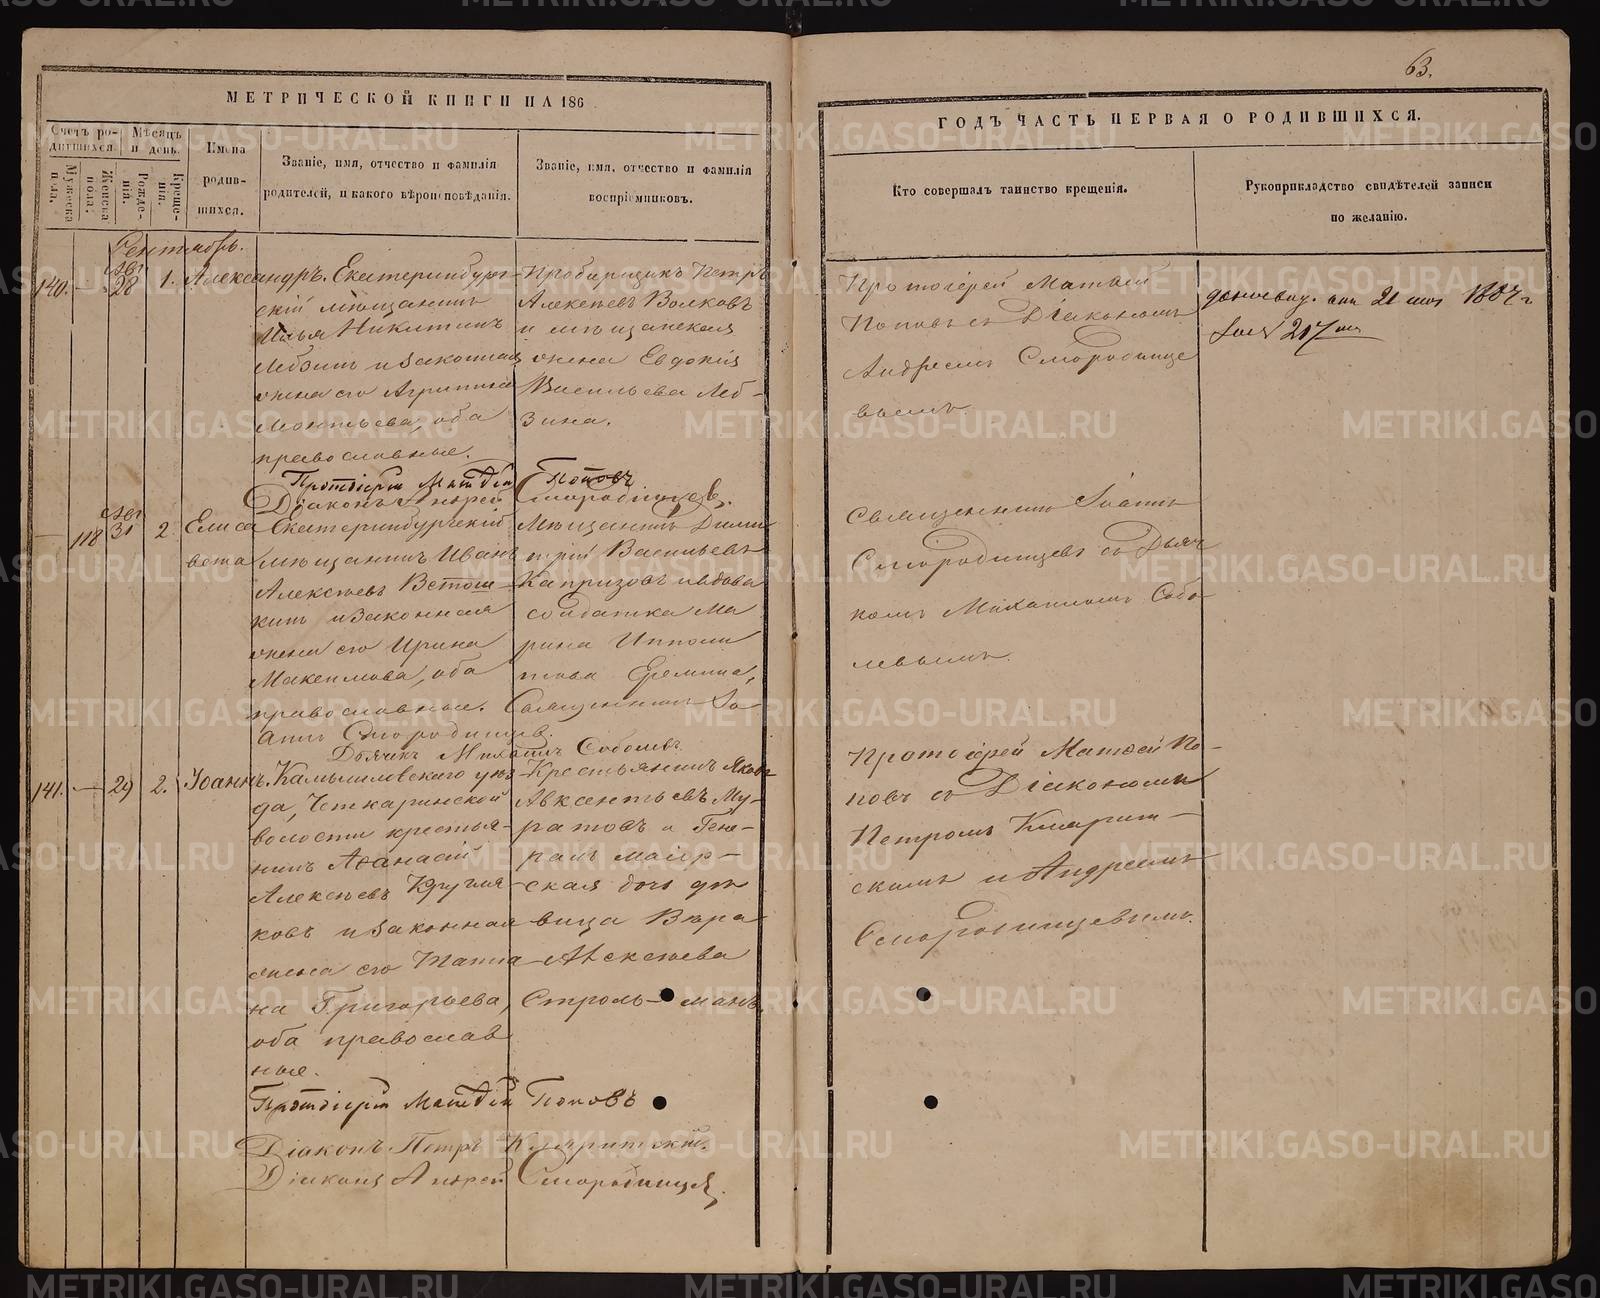 63.
МЕТРИЧЕСКОЙ КНИГИ НА 186
ГОДЪ ЧАСТЬ ПЕРВАЯ О РОДИВШИХСЯ.
Счетъ ро-
дившихся.
Мужеска
пола.
Женска
пола.
Мѣсяцъ
и день.
Рожде-
нія.
Креще-
нія.
Имена
родив-
шихся.
Званіе, имя, отчество и фамилія
родителей, и какого вѣроисповѣданія.
Званіе, имя, отчество и фамилія
воспріемниковъ.
Кто совершалъ таинство крещенія.
Рукоприкладство свидѣтелей записи
по желанію.
Сентябрь.
140. — Авг 28 1. Александръ.
Екатеринбург-
скій мѣщанинъ
Илья Никитинъ
и законная
жена его Агрипина
Леонтьева, оба
православные.
Пробирщикъ Петръ
Алексѣевъ Волковъ
и мѣщанская
жена Евдокія
Васильева
зина.
Протоіерей Матѳій
Поповъ съ Діакономъ
Андреемъ Смородинце
вымъ
21 1884 г
217
Протоіерей Матѳій Поповъ
Діаконъ Андрей Смородинцев.
— 118 Авг 31 2 Елиса
вета
Екатеринбургскій
мѣщанинъ Иванъ
Алексѣевъ Ветош-
кинъ и законная
жена его Ирина
Максимова, оба
православные.
Мѣщанинъ Дими
трій Васильевъ
Капризовъ и вдова
солдатка Ма
рина Ипполи
това Еремина,
Священникъ Іо
аннъ Смородинцев.
Дьячекъ Михаилъ Соболевъ.
Священникъ Іоаннъ
Смородинцевъ съ Дьяч
комъ Михаиломъ Собо-
левымъ.
141. — 29 2. Іоаннъ.
Камышловскаго уѣз-
да, Четкаринской
волости крестья-
нинъ Аѳанасій
Алексѣевъ Кругля-
ковъ и законная
жена его Татіа-
на Григорьева,
оба православ
ные.
Крестьянинъ Яковъ
Авксентьевъ Му-
ратовъ и Гене-
ралъ маіор-
ская дочь дѣ
вица Вѣра
Алексѣева
Строль- манъ.
Протоіерей Матѳей По-
повъ съ Діакономъ
Петромъ Кларит-
скимъ и Андреемъ
Смородинцевымъ.
Протоіерей Матѳій Поповъ
Діаконъ Петръ Кларитскій.
Діаконъ Андрей Смородинцев.
METRIKI.GASO-URAL.RU